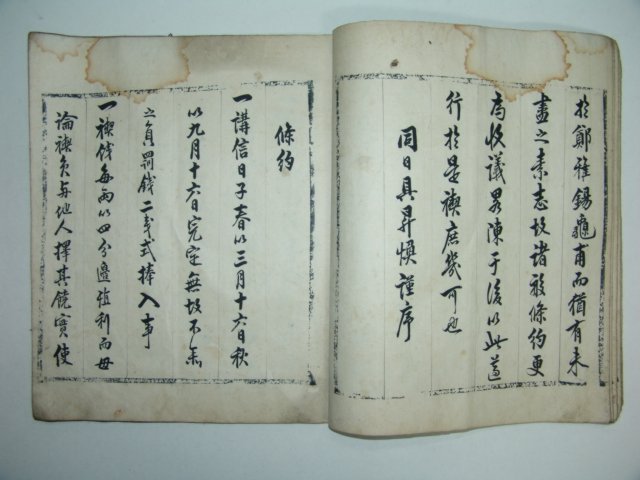 於鄭雅錫龜甫而猶有未
盡之素志故諸般條約更
爲收議畧陳于後以此遵
行於是禊庶幾可也
同日具昇煥謹序
條約
一講信日子春以三月十六日秋
以九月十六日完定無故不參
之員罰錢二戔式捧入事
一禊錢每兩以四分邊殖利而毋
論禊員與他人擇其饒實使